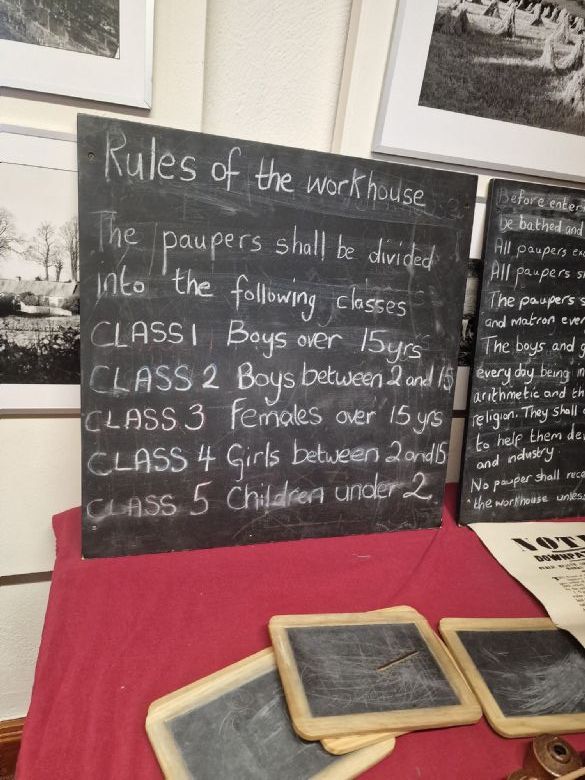 Rules of the workhouse
The paupers shall be divided
into the following classes
CLASS 1 Boys over 15yrs
CLASS 2 Boys between 2 and 15
CLASS 3 Females over 15 yrs
CLASS 4 Girls between 2 and 15
CLASS 5 Children under 2
Before enter
be bathed and
All paupers
All paupers
The paupers
and matron ever
The boys and g
every day being in
arithmetic and th
religion. They shall
to help them de
and industry.
No pauper shall rece
the workhouse unless
NOT
DOWNPA